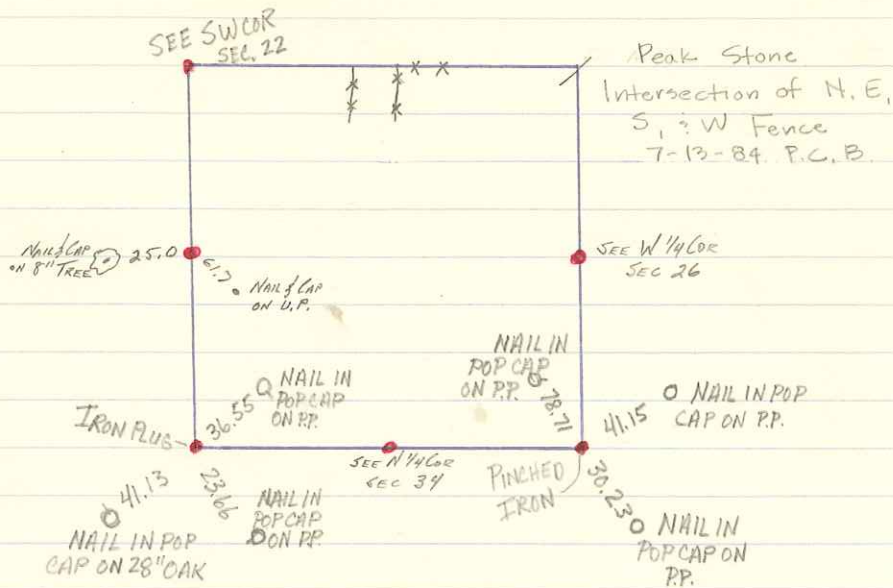 SEE SW COR
SEC. 22
Peak Stone
Intersection of N, E,
S, & W Fence
7-13-84 P.C.B.
NAIL & CAP
ON 8" TREE
25.0
61.7
NAIL & CAP
ON U.P.
SEE W 1/4 COR
SEC 26
NAIL IN
POP CAP
ON P.P.
36.55
IRON PLUG
NAIL IN
POP CAP
ON P.P.
78.71
41.15
NAIL IN POP
CAP ON P.P.
SEE N 1/4 COR
SEC 34
PINCHED
IRON
41.13
NAIL IN POP
CAP ON 28" OAK
23.66
NAIL IN
POP CAP
ON P.P.
30.23
NAIL IN
POP CAP ON
P.P.